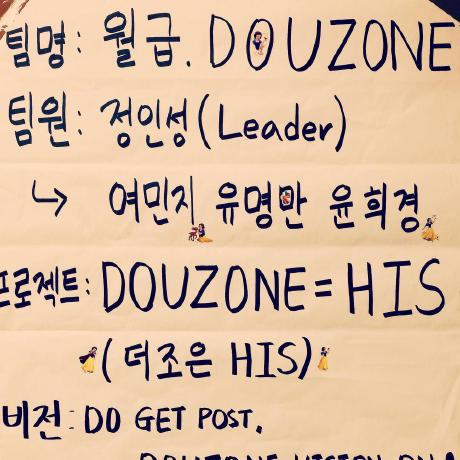 팀명: 월급. DOUZONE
팀원: 정인성(Leader)
↳ 여민지 유명만 윤희경
프로젝트: DOUZONE=HIS
(더조은 HIS)
비전: DO GET POST.